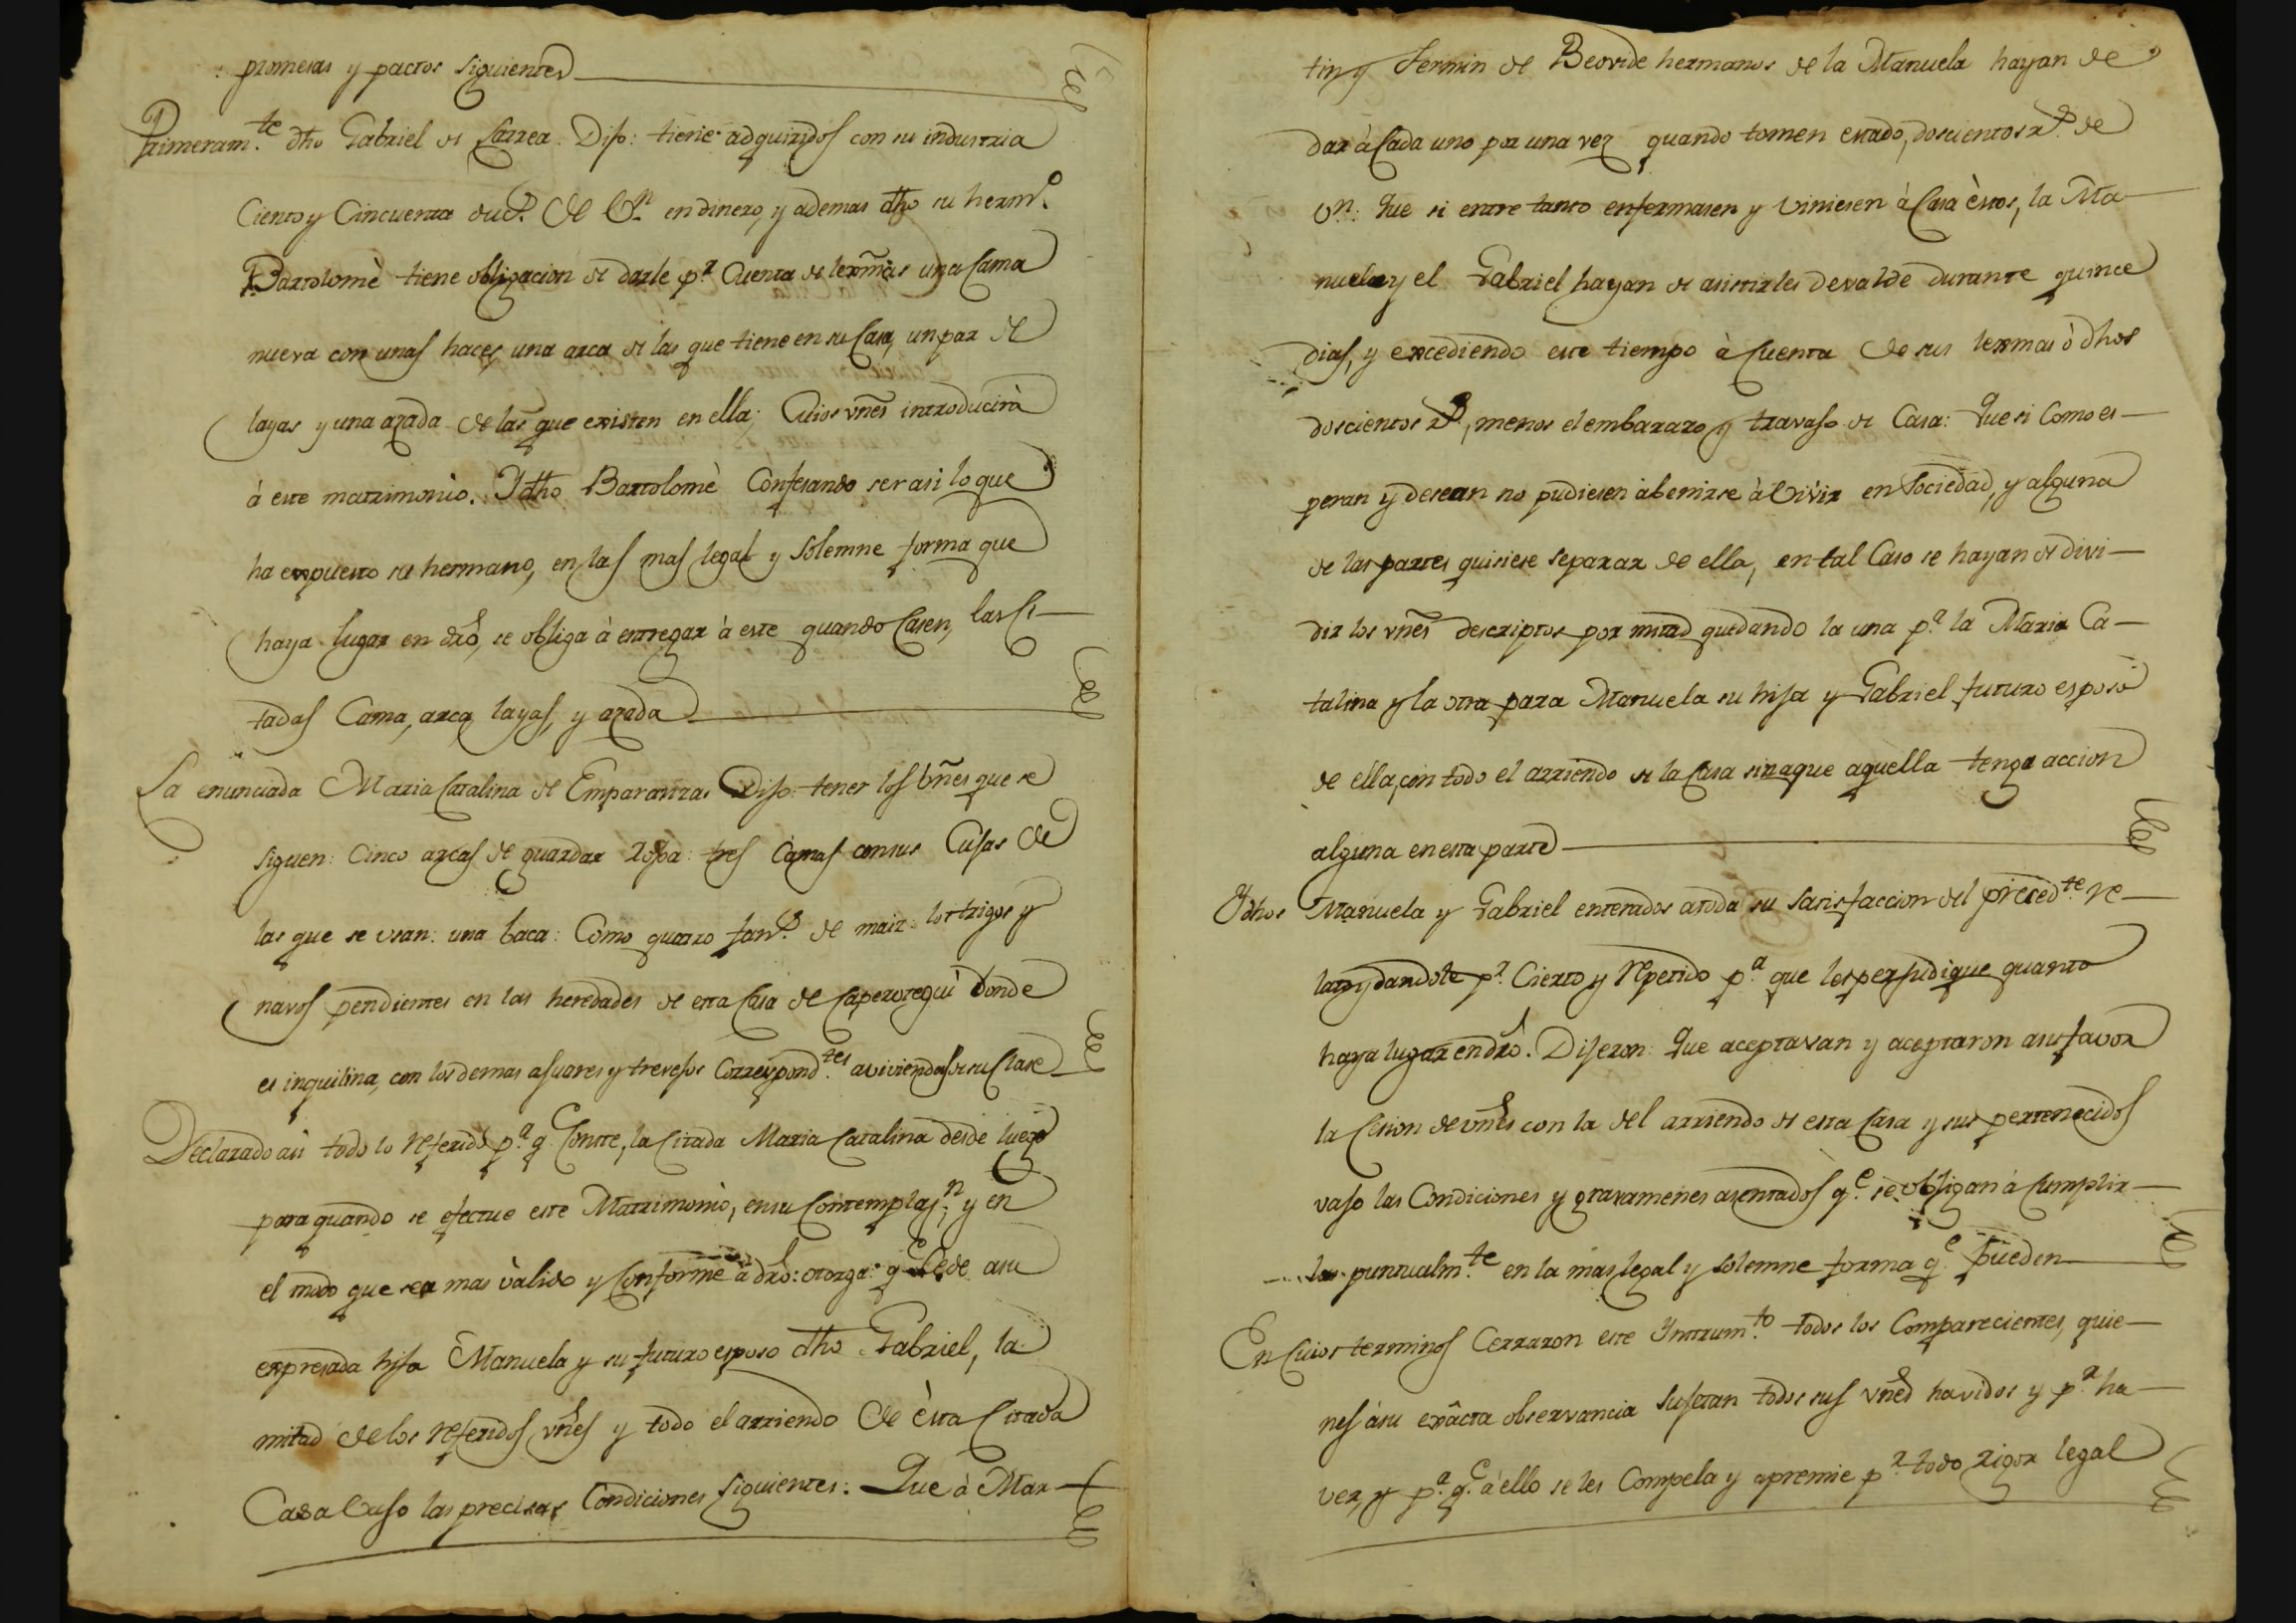 promesas y pactos siguientes
Primeram.te dho Gabriel de Larrea Dijo: tiene adquiridos con su industria
Ciento y Cincuenta duc.s de v.n en dinero, y ademas dho su herm.o
Bartolomè tiene obligacion de darle p.r Cuenta de lexmas una Cama
nueva con unas haces, una arca de las que tiene en su Casa, un par de
layas y una azada de las que existen en ella; Cuios vñes introducirà
à este matrimonio. Y dho Bartolomè Confesando ser asi lo que
ha expuesto su hermano, en las mas legal y solemne forma que
haya lugar en dro, se obliga à entregar à este quando Casen, las Ci-
tadas Cama, arca, layas, y azada
La enunciada Maria Catalina de Emparanzas Dijo: tener los vñes que se
siguen: Cinco arcas de guardar ropa: tres Camas con sus Cujas de
las que se usan: una baca: Como quatro fan.s de maiz: los trigos y
navos pendientes en las heredades de esta Casa de Caperotegui donde
es inquilina, con los demas ajuares y trevejos Correspond.tes a viviendas de su Clase
Declarado asi todo lo referido p.a q.e Conste, la Citada Maria Catalina desde luego
para quando se efectue este Matrimonio, en su Contemplaz.n y en
el modo que sea mas vàlido y Conforme à dro: otorga: q.e Cede a su
expresada hija Manuela y su futuro esposo dho Gabriel, la
mitad de los referidos vñes y todo el arriendo de èsta Citada
Casa vajo las precisas Condiciones siguientes: Que à Mar-
tin y Fermin de Beovide hermanos de la Manuela hayan de
dar à Cada uno por una vez quando tomen estado, doscientos r.s de
v.n: Que si entre tanto enfermasen y viniesen à Casa èstos, la Ma-
nuela y el Gabriel hayan de asistirles devalde durante quince
dias, y excediendo este tiempo à Cuenta de sus lexmas ò dhos
doscientos r.s, menos el embarazo y travajo de Casa: Que si Como es-
peran y desean no pudiesen abenirse à vivir en Sociedad, y alguna
de las partes quisiese separar de ella, en tal Caso se hayan de divi-
dir los vñes descriptos por mitad quedando la una p.a la Maria Ca-
talina y la otra para Manuela su hija y Gabriel futuro esposo
de ella, con todo el arriendo de la Casa sin que aquella tenga accion
alguna en esta parte
Y dhos Manuela y Gabriel enterados a toda su satisfaccion del preced.te re-
lato y dandole p.r Cierto y repetido p.a que les perjudique quanto
haya lugar en dro. Dijeron: Que aceptavan y aceptaron a su favor
la Cesion de vñes con la del arriendo de esta Casa y sus pertenecidos
vajo las Condiciones y gravamenes asentados q.e se obligan à Cumplir-
las puntualm.te en la mas legal y solemne forma q.e pueden
En Cuios terminos Cerraron este Ynstrum.to todos los Comparecientes, quie-
nes à su exâcta observancia sujetan todos sus vñes havidos y p.r ha-
ver, y p.a q.e à ello se les Compela y apremie p.r todo rigor legal